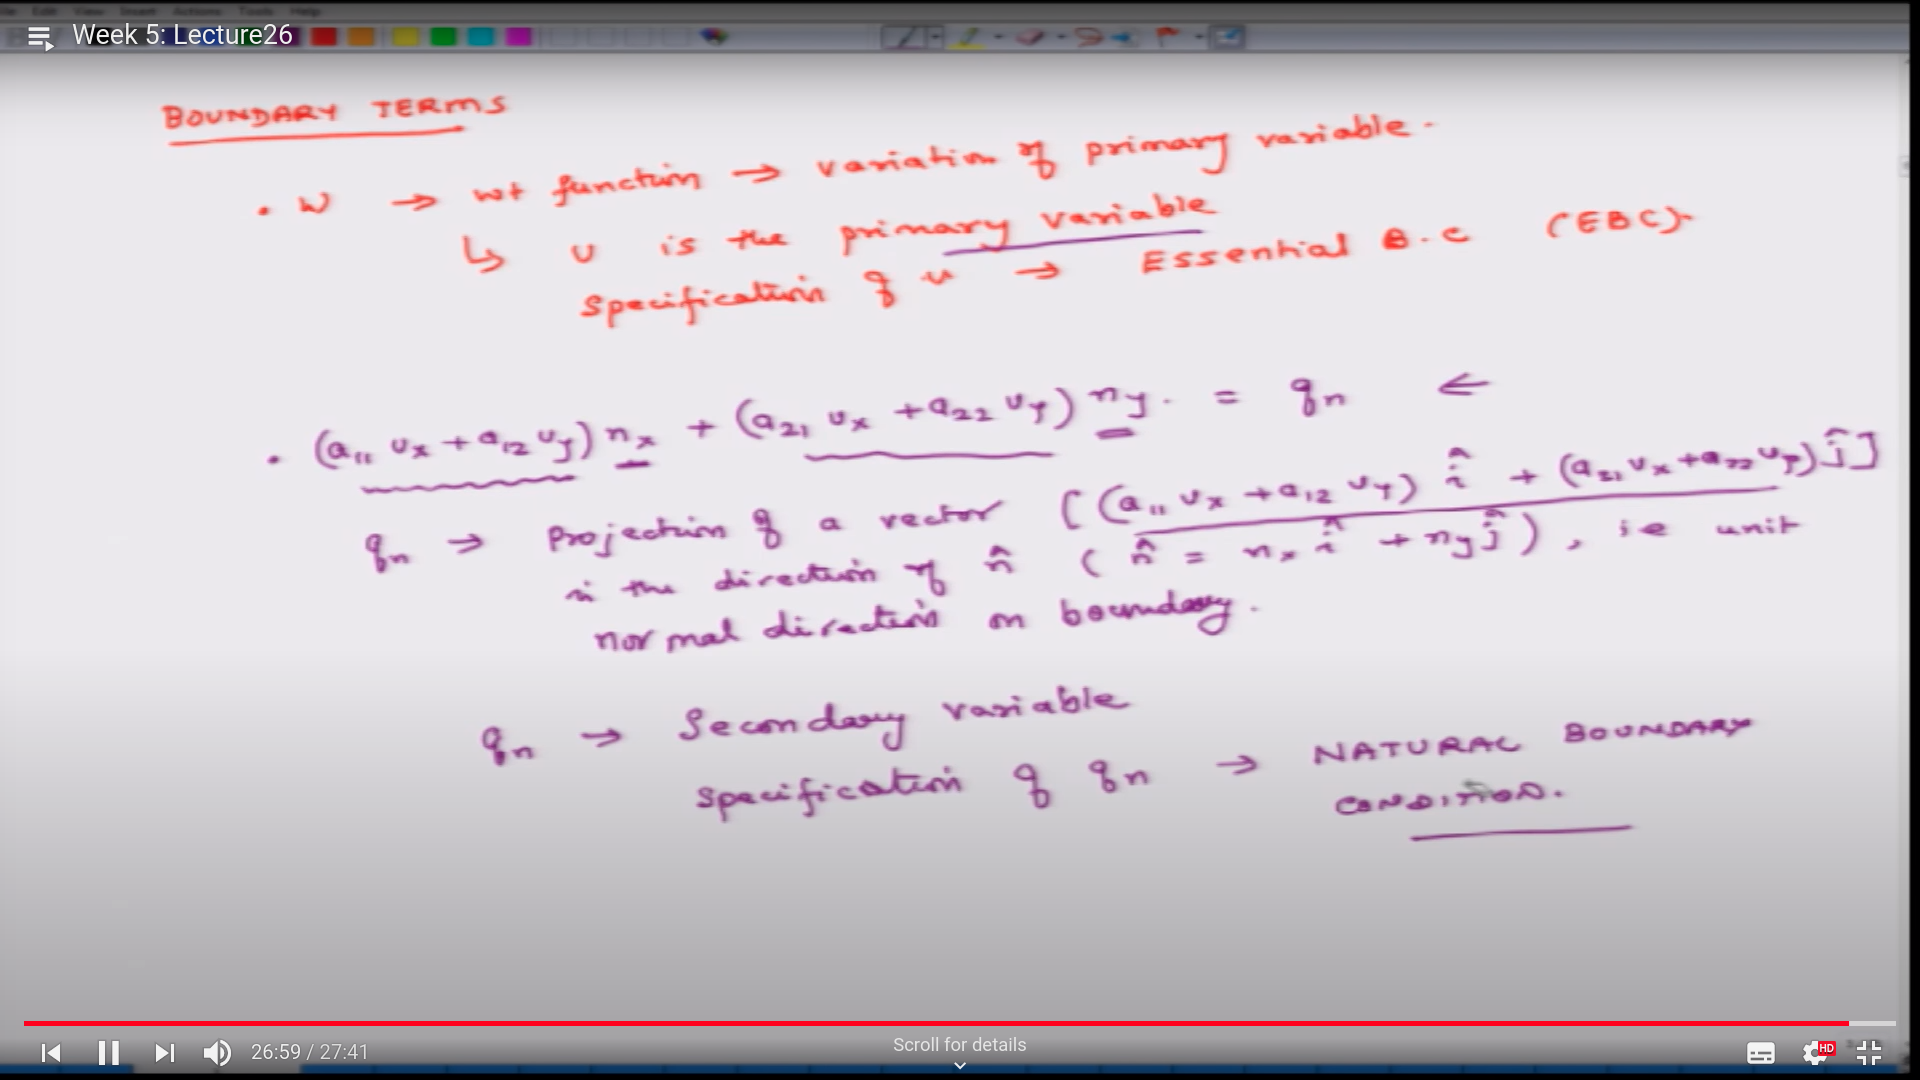 File Edit View Insert Actions Tools Help
Week 5: Lecture26
BOUNDARY TERMS
• W → wt function → variation of primary variable.
↳ u is the primary variable
Specification of u → Essential B.C (EBC).
• (a₁₁ uₓ + a₁₂ u_y) nₓ + (a₂₁ uₓ + a₂₂ u_y) n_y. = qₙ ←
qₙ → Projection of a vector [(a₁₁ uₓ + a₁₂ u_y) î + (a₂₁ uₓ + a₂₂ u_y) ĵ]
in the direction of n̂ (n̂ = nₓ î + n_y ĵ), ie unit
normal direction on boundary.
qₙ → Secondary variable
Specification of qₙ → NATURAL BOUNDARY
CONDITION.
Scroll for details
26:59 / 27:41
HD